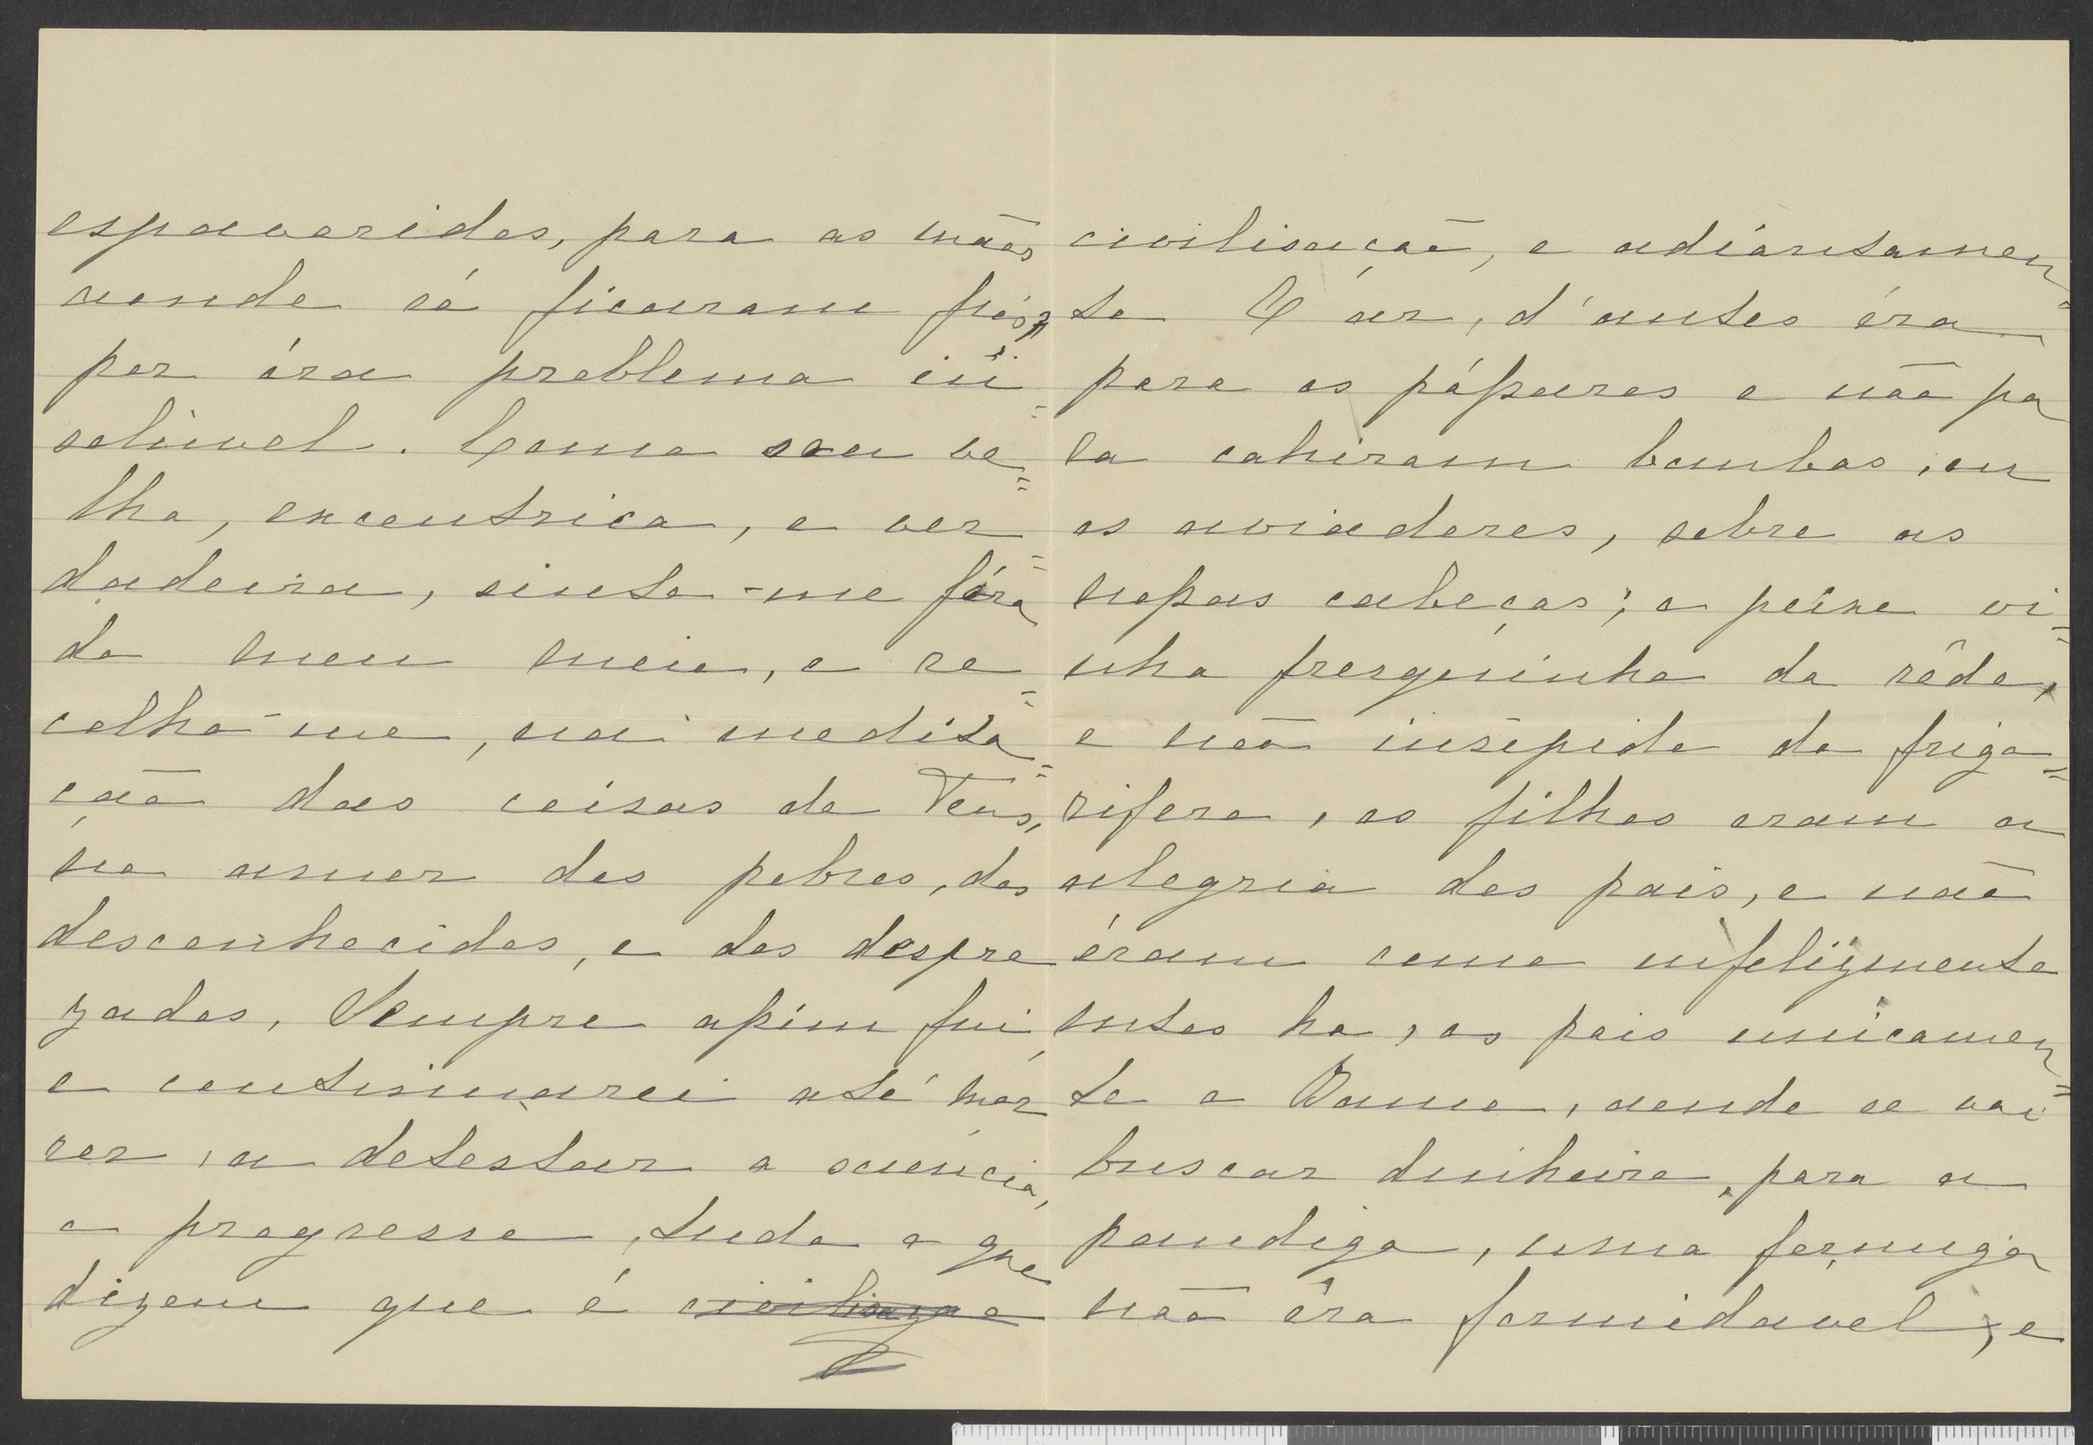 espavoridos, para as mãos
aonde só ficaram pós,
por óra problema in=
soluvel. Como sou ve=
lha, excentrica, e ver=
dadeira, sinto-me fóra
do meu meio, e re=
colho-me, na medita=
ção das coisas de Deus,
no amor dos pobres, dos
desconhecidos, e dos despre
zados. Sempre assim fui,
e continuarei até mor
rer, a detestar a sciencia,
o progresso, tudo o que
dizem que é civilisação
civilisação, e adiantamen=
to O ar, d'antes éra
para os pássaros e não pa
la cahiram bombas, ou
os aviadores, sobre as
nossas cabeças; o peixe vi=
nha fresquinho da rêde,
e não insipido do frigo=
rifero, os filhos eram a
alegria dos pais, e não
éram como infelizmente
ntos ha, os pais unicamen=
te o Banco, aonde se vai
buscar dinheiro, para a
pandiga, uma formiga
não éra formidavel, e